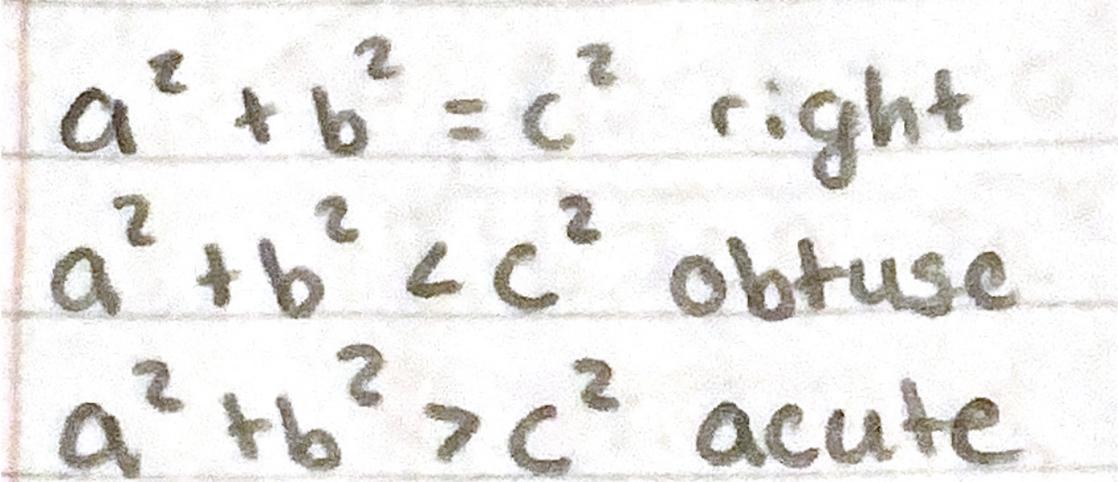 a² + b² = c² right
a² + b² < c² obtuse
a² + b² > c² acute